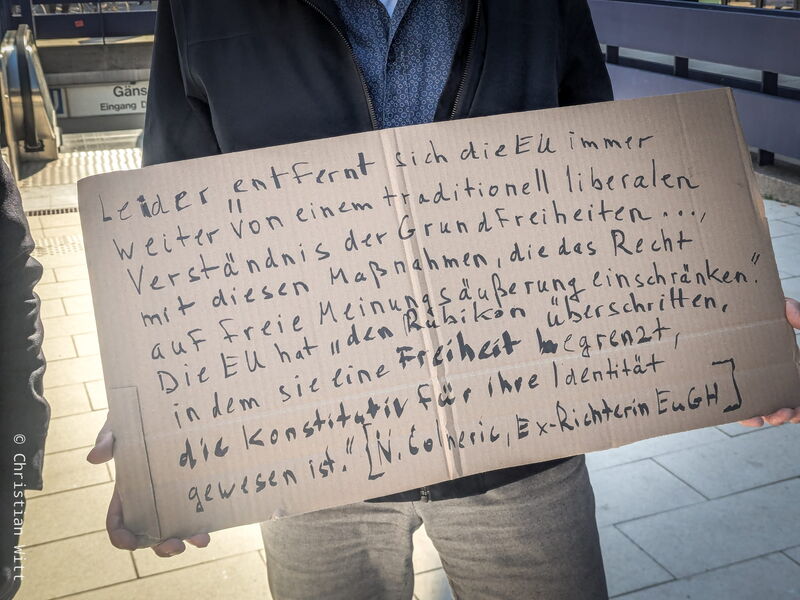 Gäns
Eingang D
Leider "entfernt sich die EU immer
weiter von einem traditionell liberalen
Verständnis der Grundfreiheiten ...,
mit diesen Maßnahmen, die das Recht
auf freie Meinungsäußerung einschränken."
Die EU hat "den Rubikon überschritten,
indem sie eine Freiheit begrenzt,
die konstitutiv für ihre Identität
gewesen ist." [N. Colneric, Ex-Richterin EuGH]
© Christian Witt